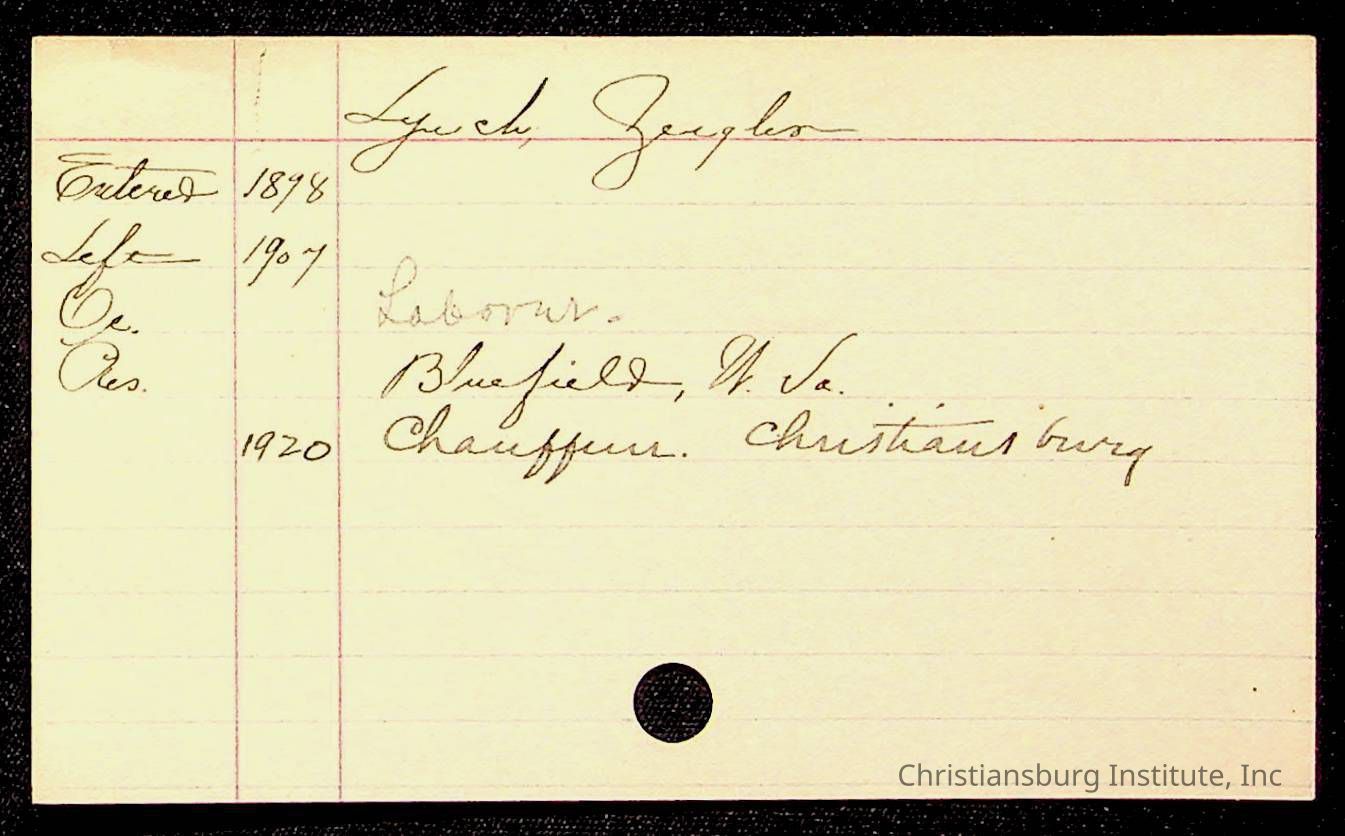 Lynch, Zeigler
Entered 1898
Left 1907
Oc. Labourer.
Res. Bluefield, W. Va.
1920 Chauffeur. Christiansburg
Christiansburg Institute, Inc